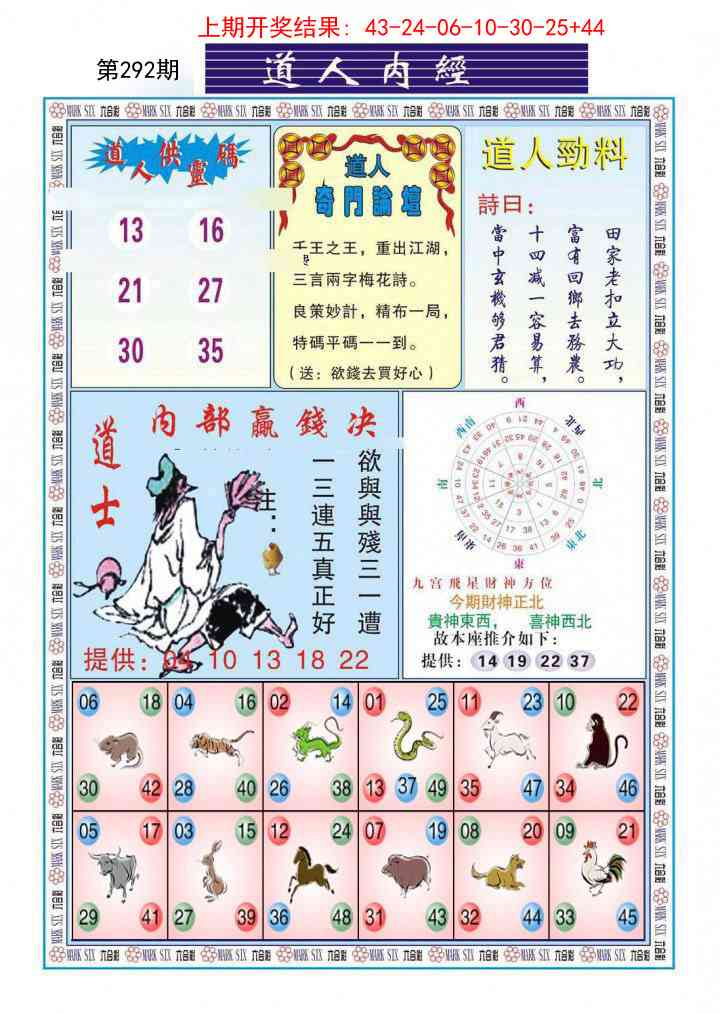 上期开奖结果: 43-24-06-10-30-25+44
第292期
道人内經
道人供靈碼
13 16
21 27
30 35
道人
奇門論壇
千王之王，重出江湖，
三言兩字梅花詩。
良策妙計，精布一局，
特碼平碼一一到。
(送：欲錢去買好心)
道人勁料
詩曰：
田家老扣立大功，
富有回鄉去務農。
十四减一容易算，
當中玄機够君猜。
内部贏錢决
道士
欲與與殘三一遭
一三連五真正好
注：
提供：04 10 13 18 22
西
西南
西北
南
北
東南
東北
東
九宫飛星財神方位
今期財神正北
貴神東西， 喜神西北
故本座推介如下：
提供：14 19 22 37
06 18 04 16 02 14 01 25 11 23 10 22
30 42 28 40 26 38 13 37 49 35 47 34 46
05 17 03 15 12 24 07 19 08 20 09 21
29 41 27 39 36 48 31 43 32 44 33 45
MARK SIX 六合彩 MARK SIX 六合彩 MARK SIX 六合彩 MARK SIX 六合彩 MARK SIX 六合彩 MARK SIX 六合彩 MARK SIX 六合彩 MARK SIX 六合彩